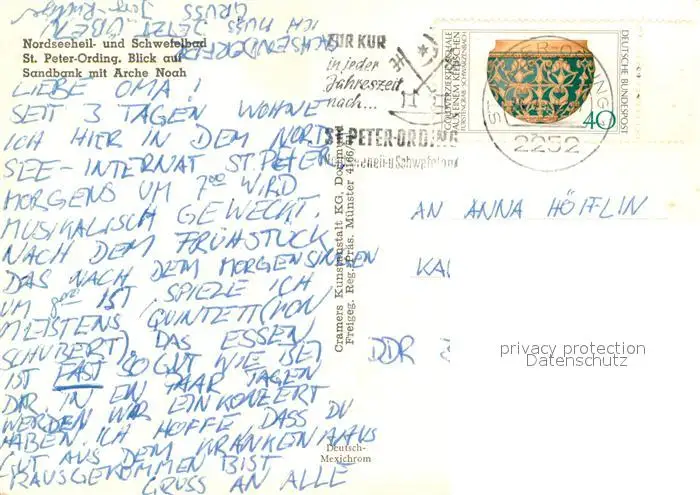 Nordseeheil- und Schwefelbad
St. Peter-Ording. Blick auf
Sandbank mit Arche Noah
LIEBE OMA!
SEIT 3 TAGEN WOHNE
ICH HIER IN DEM NORD
SEE-INTERNAT ST. PETER
MORGENS UM 7⁰⁰ WIRD
MUSIKALISCH GEWECKT.
NACH DEM FRÜHSTÜCK
DAS NACH DEM MORGENSINGEN
UM 8⁰⁰ IST, SPIELE ICH
MEISTENS QUINTETT (VON
SCHUBERT). DAS ESSEN
IST FAST SO GUT WIE BEI
DIR. IN EIN PAAR TAGEN
WERDEN WIR EIN KONZERT
HABEN. ICH HOFFE DASS DU
GUT AUS DEM KRANKENHAUS
RAUSGEKOMMEN BIST
GRUSS AN ALLE
ICH MUSS JETZT ÜBEN
GRUSS
ZUR KUR
in jeder
Jahreszeit
nach...
ST. PETER-ORDING
Nordseeheil-u. Schwefelbad
GOLDVERZIERTE SCHALE
AUS EINEM KELTISCHEN
FÜRSTENGRAB · SCHWARZENBACH
DEUTSCHE BUNDESPOST
40
ST. PETER-ORDING
2252
Cramers Kunstanstalt KG, Dortmund
Freigeg. Reg. Präs. Münster 4166/
AN ANNA HÖFFLIN
KA
DDR
privacy protection
Datenschutz
Deutsch-
Mexichrom